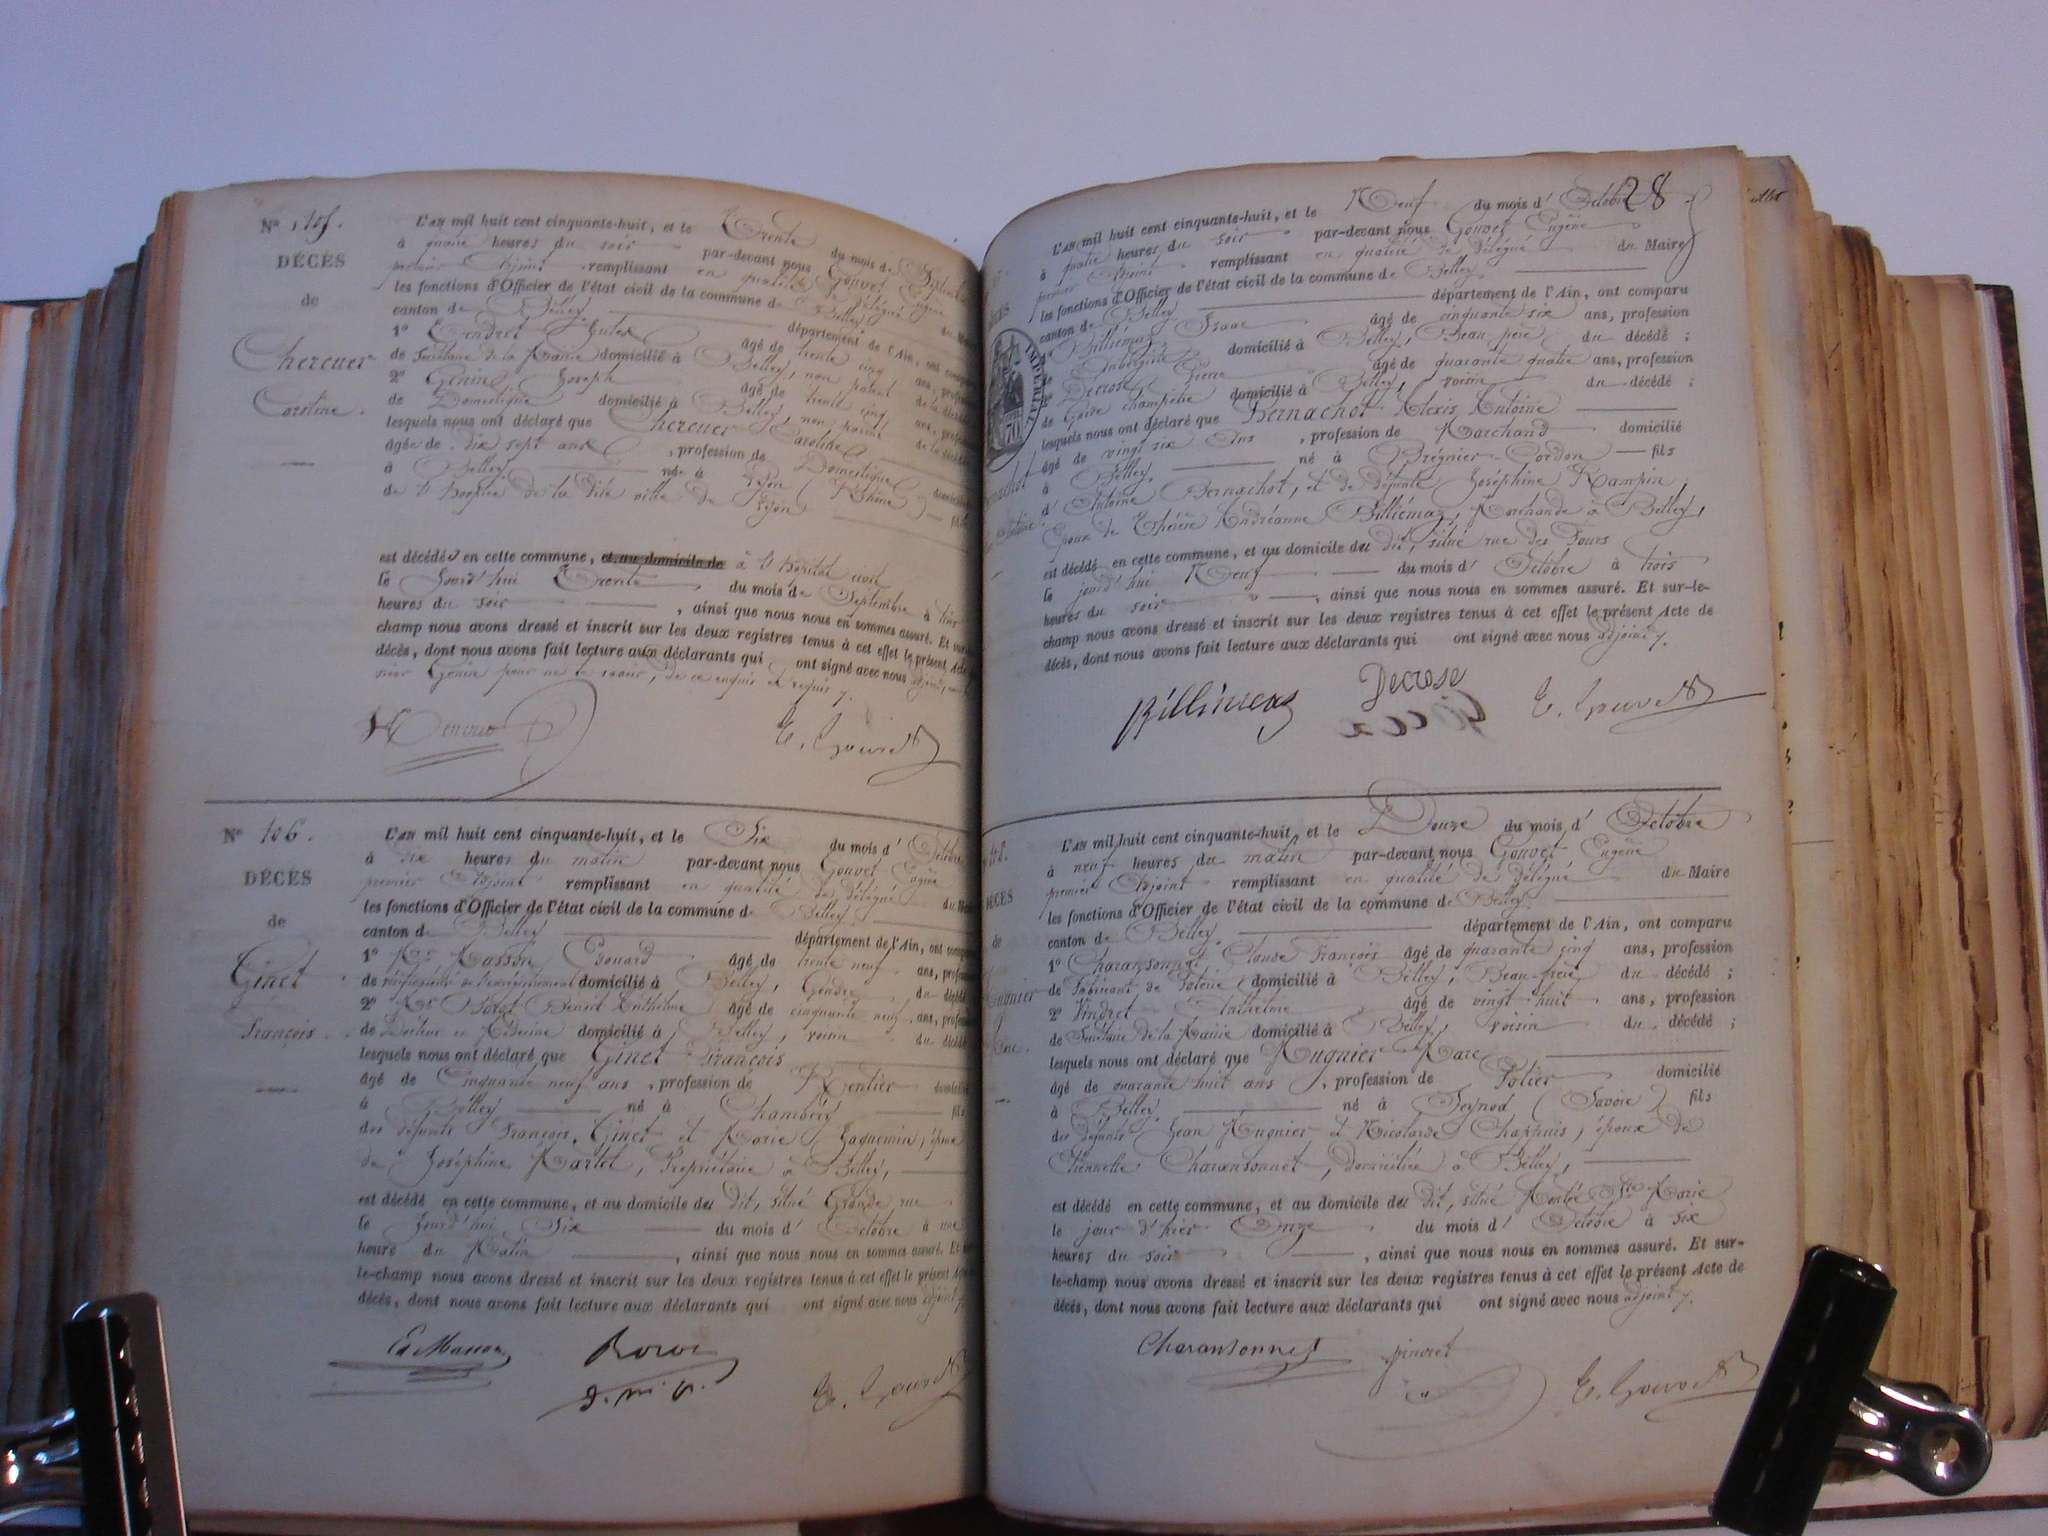 Nº 105.
DÉCÈS
de
Chercuer
Caroline.
L'AN mil huit cent cinquante-huit, et le Trente du mois de Septembre
à quatre heures du soir par-devant nous Gouvet Eugène
premier Adjoint remplissant en qualité de délégué du Maire
les fonctions d'Officier de l'état civil de la commune de Belley
canton de Belley département de l'Ain, ont comparu
1º âgé de trente cinq ans, profession
de Secrétaire de la Mairie domicilié à Belley, non parent de la décédée
2º Genin Joseph âgé de trente cinq ans, profession
de Domestique domicilié à Belley, non parent de la décédée
lesquels nous ont déclaré que Chercuer Caroline
âgée de dix sept ans, profession de Domestique domiciliée
à Belley née à Lyon (Rhône) fille
de l'hospice de la dite ville de Lyon
est décédée en cette commune, et au domicile de à l'hôpital civil
le jourd'hui Trente du mois de Septembre à trois
heures du soir, ainsi que nous nous en sommes assuré. Et sur-le-
champ nous avons dressé et inscrit sur les deux registres tenus à cet effet le présent Acte de
décès, dont nous avons fait lecture aux déclarants qui ont signé avec nous adjoint,
sieur Genin pour ne le savoir, de ce enquis et requis ./.
E. Gouvet
Nº 106.
DÉCÈS
de
Ginet
François.
L'AN mil huit cent cinquante-huit, et le Six du mois d'Octobre
à dix heures du matin par-devant nous Gouvet Eugène
premier Adjoint remplissant en qualité de délégué du Maire
les fonctions d'Officier de l'état civil de la commune de Belley
canton de Belley département de l'Ain, ont comparu
1º Mr Masson Edouard âgé de trente neuf ans, profession
de l'enregistrement domicilié à Belley, Gendre du décédé
2º Mr Benoit Anthelme âgé de cinquante neuf ans, profession
de Docteur en Médecine domicilié à Belley, voisin du décédé
lesquels nous ont déclaré que Ginet François
âgé de Cinquante neuf ans, profession de Rentier domicilié
à Belley né à Chambéry fils
des défunts François Ginet et Marie Jaquemin, époux
de Joséphine Martet, Propriétaire à Belley,
est décédé en cette commune, et au domicile du dit, situé Grande rue
le Jourd'hui Six du mois d'Octobre à une
heure du Matin, ainsi que nous nous en sommes assuré. Et sur-
le-champ nous avons dressé et inscrit sur les deux registres tenus à cet effet le présent Acte de
décès, dont nous avons fait lecture aux déclarants qui ont signé avec nous adjoint ./.
Ed Masson
d.m.p.
E. Gouvet
28
L'AN mil huit cent cinquante-huit, et le Neuf du mois d'Octobre
à quatre heures du soir par-devant nous Gouvet Eugène
premier Adjoint remplissant en qualité de délégué du Maire
les fonctions d'Officier de l'état civil de la commune de Belley
canton de Belley département de l'Ain, ont comparu
1º Billiémaz Isaac âgé de cinquante six ans, profession
de Aubergiste domicilié à Belley, Beau père du décédé ;
2º Decrose Pierre âgé de quarante quatre ans, profession
de Garde champêtre domicilié à Belley, voisin du décédé ;
lesquels nous ont déclaré que Bernachot Alexis Antoine
âgé de vingt six Ans, profession de Marchand domicilié
à Belley né à Brégnier-Cordon fils
d'Antoine Bernachot, et de défunte Joséphine Rampin,
époux de Andréanne Billiémaz, Marchande à Belley,
est décédé en cette commune, et au domicile du dit, situé rue des Fours
le jourd'hui Neuf du mois d'Octobre à trois
heures du soir, ainsi que nous nous en sommes assuré. Et sur-le-
champ nous avons dressé et inscrit sur les deux registres tenus à cet effet le présent Acte de
décès, dont nous avons fait lecture aux déclarants qui ont signé avec nous adjoint ./.
IMPÉRIAL
Billiemaz
Decrose
E. Gouvet
DÉCÈS
de
Mugnier
Marc.
L'AN mil huit cent cinquante-huit, et le Douze du mois d'Octobre
à neuf heures du matin par-devant nous Gouvet Eugène
premier Adjoint remplissant en qualité de délégué du Maire
les fonctions d'Officier de l'état civil de la commune de Belley
canton de Belley département de l'Ain, ont comparu
1º Charansonnet Claude François âgé de quarante cinq ans, profession
de Fabricant de Poterie domicilié à Belley, Beau-frère du décédé ;
2º Vindret Anthelme âgé de vingt huit ans, profession
de Secrétaire de la Mairie domicilié à Belley, voisin du décédé ;
lesquels nous ont déclaré que Mugnier Marc
âgé de quarante huit ans, profession de Potier domicilié
à Belley né à Seynod (Savoie) fils
des défunts Jean Mugnier et Nicolarde Chappuis, époux de
Etiennette Charansonnet, domiciliée à Belley,
est décédé en cette commune, et au domicile du dit, situé Montée Ste Marie
le jour d'hier Onze du mois d'Octobre à six
heures du soir, ainsi que nous nous en sommes assuré. Et sur-
le-champ nous avons dressé et inscrit sur les deux registres tenus à cet effet le présent Acte de
décès, dont nous avons fait lecture aux déclarants qui ont signé avec nous adjoint ./.
Charansonnet
E. Gouvet